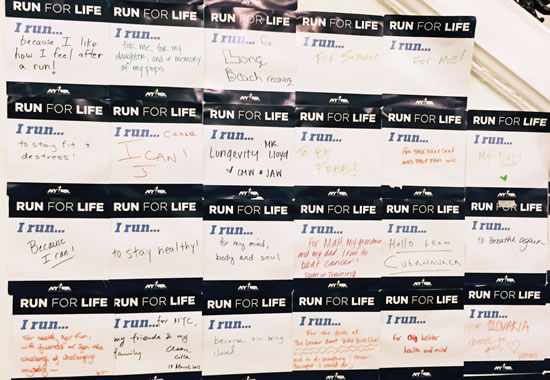 RUN FOR LIFE
I run...
because I like
how I feel after
a run!
RUN FOR LIFE
I run...
for me, for my
daughter, and in memory
of my pops
RUN FOR LIFE
I run... for
Long
Beach recovery
RUN FOR LIFE
I run...
For Suzanne
RUN FOR LIFE
I run...
For Me!
RUN FOR LIFE
I run...
to stay fit &
destress!
RUN FOR LIFE
I run... Cause
I CAN!
J
RUN FOR LIFE
I run... MR.
Longevity Lloyd
CMW & JAW
RUN FOR LIFE
I run...
TO BE
FREE!
RUN FOR LIFE
I run...
FOR THOSE THAT CAN'T
AND THOSE THAT WILL
RUN FOR LIFE
I run...
MY DAD!
RUN FOR LIFE
I run...
Because
I can!
RUN FOR LIFE
I run...
to stay healthy!
RUN FOR LIFE
I run...
for my mind,
body and soul
RUN FOR LIFE
I run...
for Matt, my grandma
and my dad. I run to
beat cancer!
Team in Training
RUN FOR LIFE
I run...
Hello from
CUERNAVACA
RUN FOR LIFE
I run...
to Breathe again
RUN FOR LIFE
I run...
For health, for fun,
challenge of challenging
myself
RUN FOR LIFE
I run... for NYC,
my friends & my
family
RUN FOR LIFE
I run...
because I'm being
chased
RUN FOR LIFE
I run...
For the girls at
and to do something I never
thought I could do.
RUN FOR LIFE
I run...
for better
health and mind
RUN FOR LIFE
I run...
for SLOVAKIA